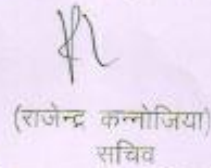 (राजेन्द्र कन्नोजिया)
सचिव